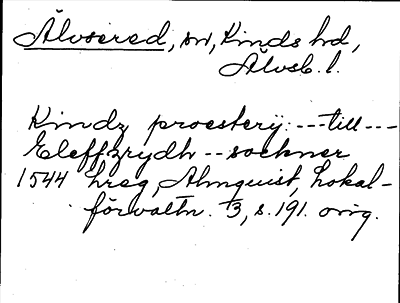 Älvsered, sn, Kinds hd,
Älvsb. l.
Kindz proesterij: --- till ---
Eleffzrydh -- sockner
1544 hreg, Almquist, Lokal-
förvaltn. 3, s. 191. orig.